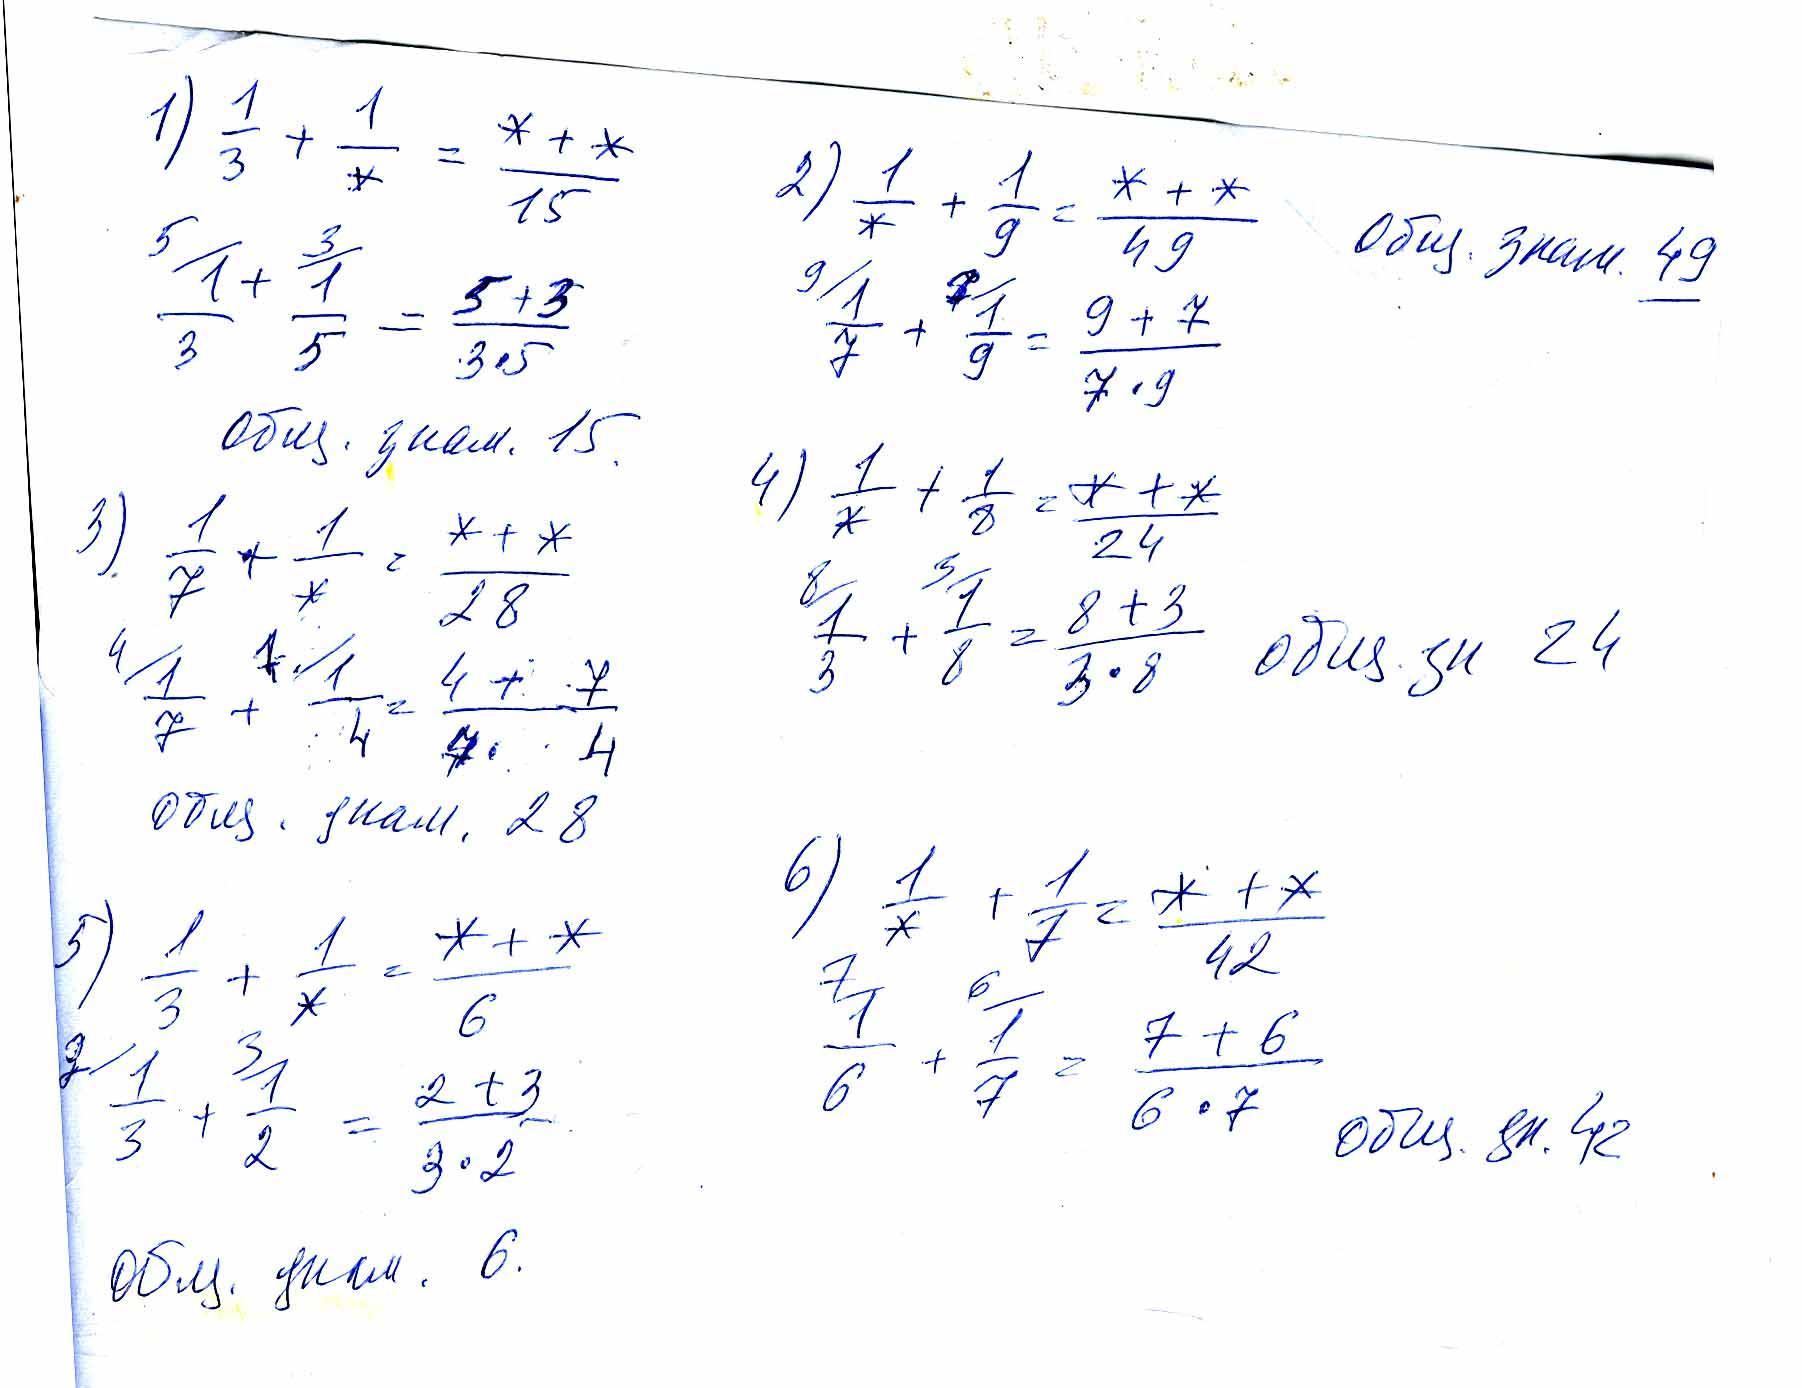 1) 1/3 + 1/* = (* + *)/15
5/1/3 + 3/1/5 = (5+3)/(3·5)
Общ. знам. 15.
2) 1/* + 1/9 = (* + *)/49 Общ. знам. 49
9/1/7 + 7/1/9 = (9 + 7)/(7·9)
3) 1/7 + 1/* = (* + *)/28
4/1/7 + 7/1/4 = (4 + 7)/(7·4)
Общ. знам. 28
4) 1/* + 1/8 = (* + *)/24
8/1/3 + 3/1/8 = (8+3)/(3·8) Общ. зн 24
5) 1/3 + 1/* = (* + *)/6
2/1/3 + 3/1/2 = (2+3)/(3·2)
Общ. знам. 6.
6) 1/* + 1/7 = (* + *)/42
7/1/6 + 6/1/7 = (7 + 6)/(6·7)
Общ. зн. 42